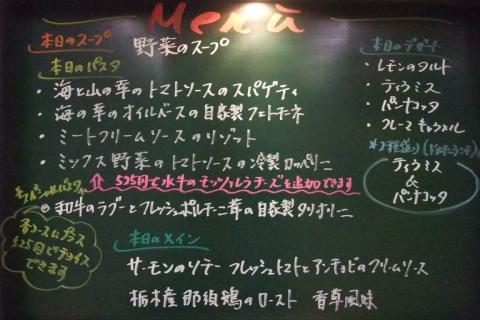 Menù
本日のスープ 野菜のスープ
本日のパスタ
・海と山の幸のトマトソースのスパゲティ
・海の幸のオイルベースの自家製フェトチーネ
・ミートクリームソースのリゾット
・ミックス野菜のトマトソースの冷製カッペリーニ
⇧525円で水牛のモッツァレラチーズを追加できます
*スペシャルパスタ*
◎和牛のラグーとフレッシュポルチーニ茸の自家製タリオリーニ
各コースにプラス
525円でチョイス
できます
本日のメイン
サーモンのソテー フレッシュトマトとアンチョビのクリームソース
栃木産那須鶏のロースト 香草風味
本日のデザート
・レモンのタルト
・ティラミス
・パンナコッタ
・クレーマキャラメル
*2種盛り
ティラミス
&
パンナコッタ